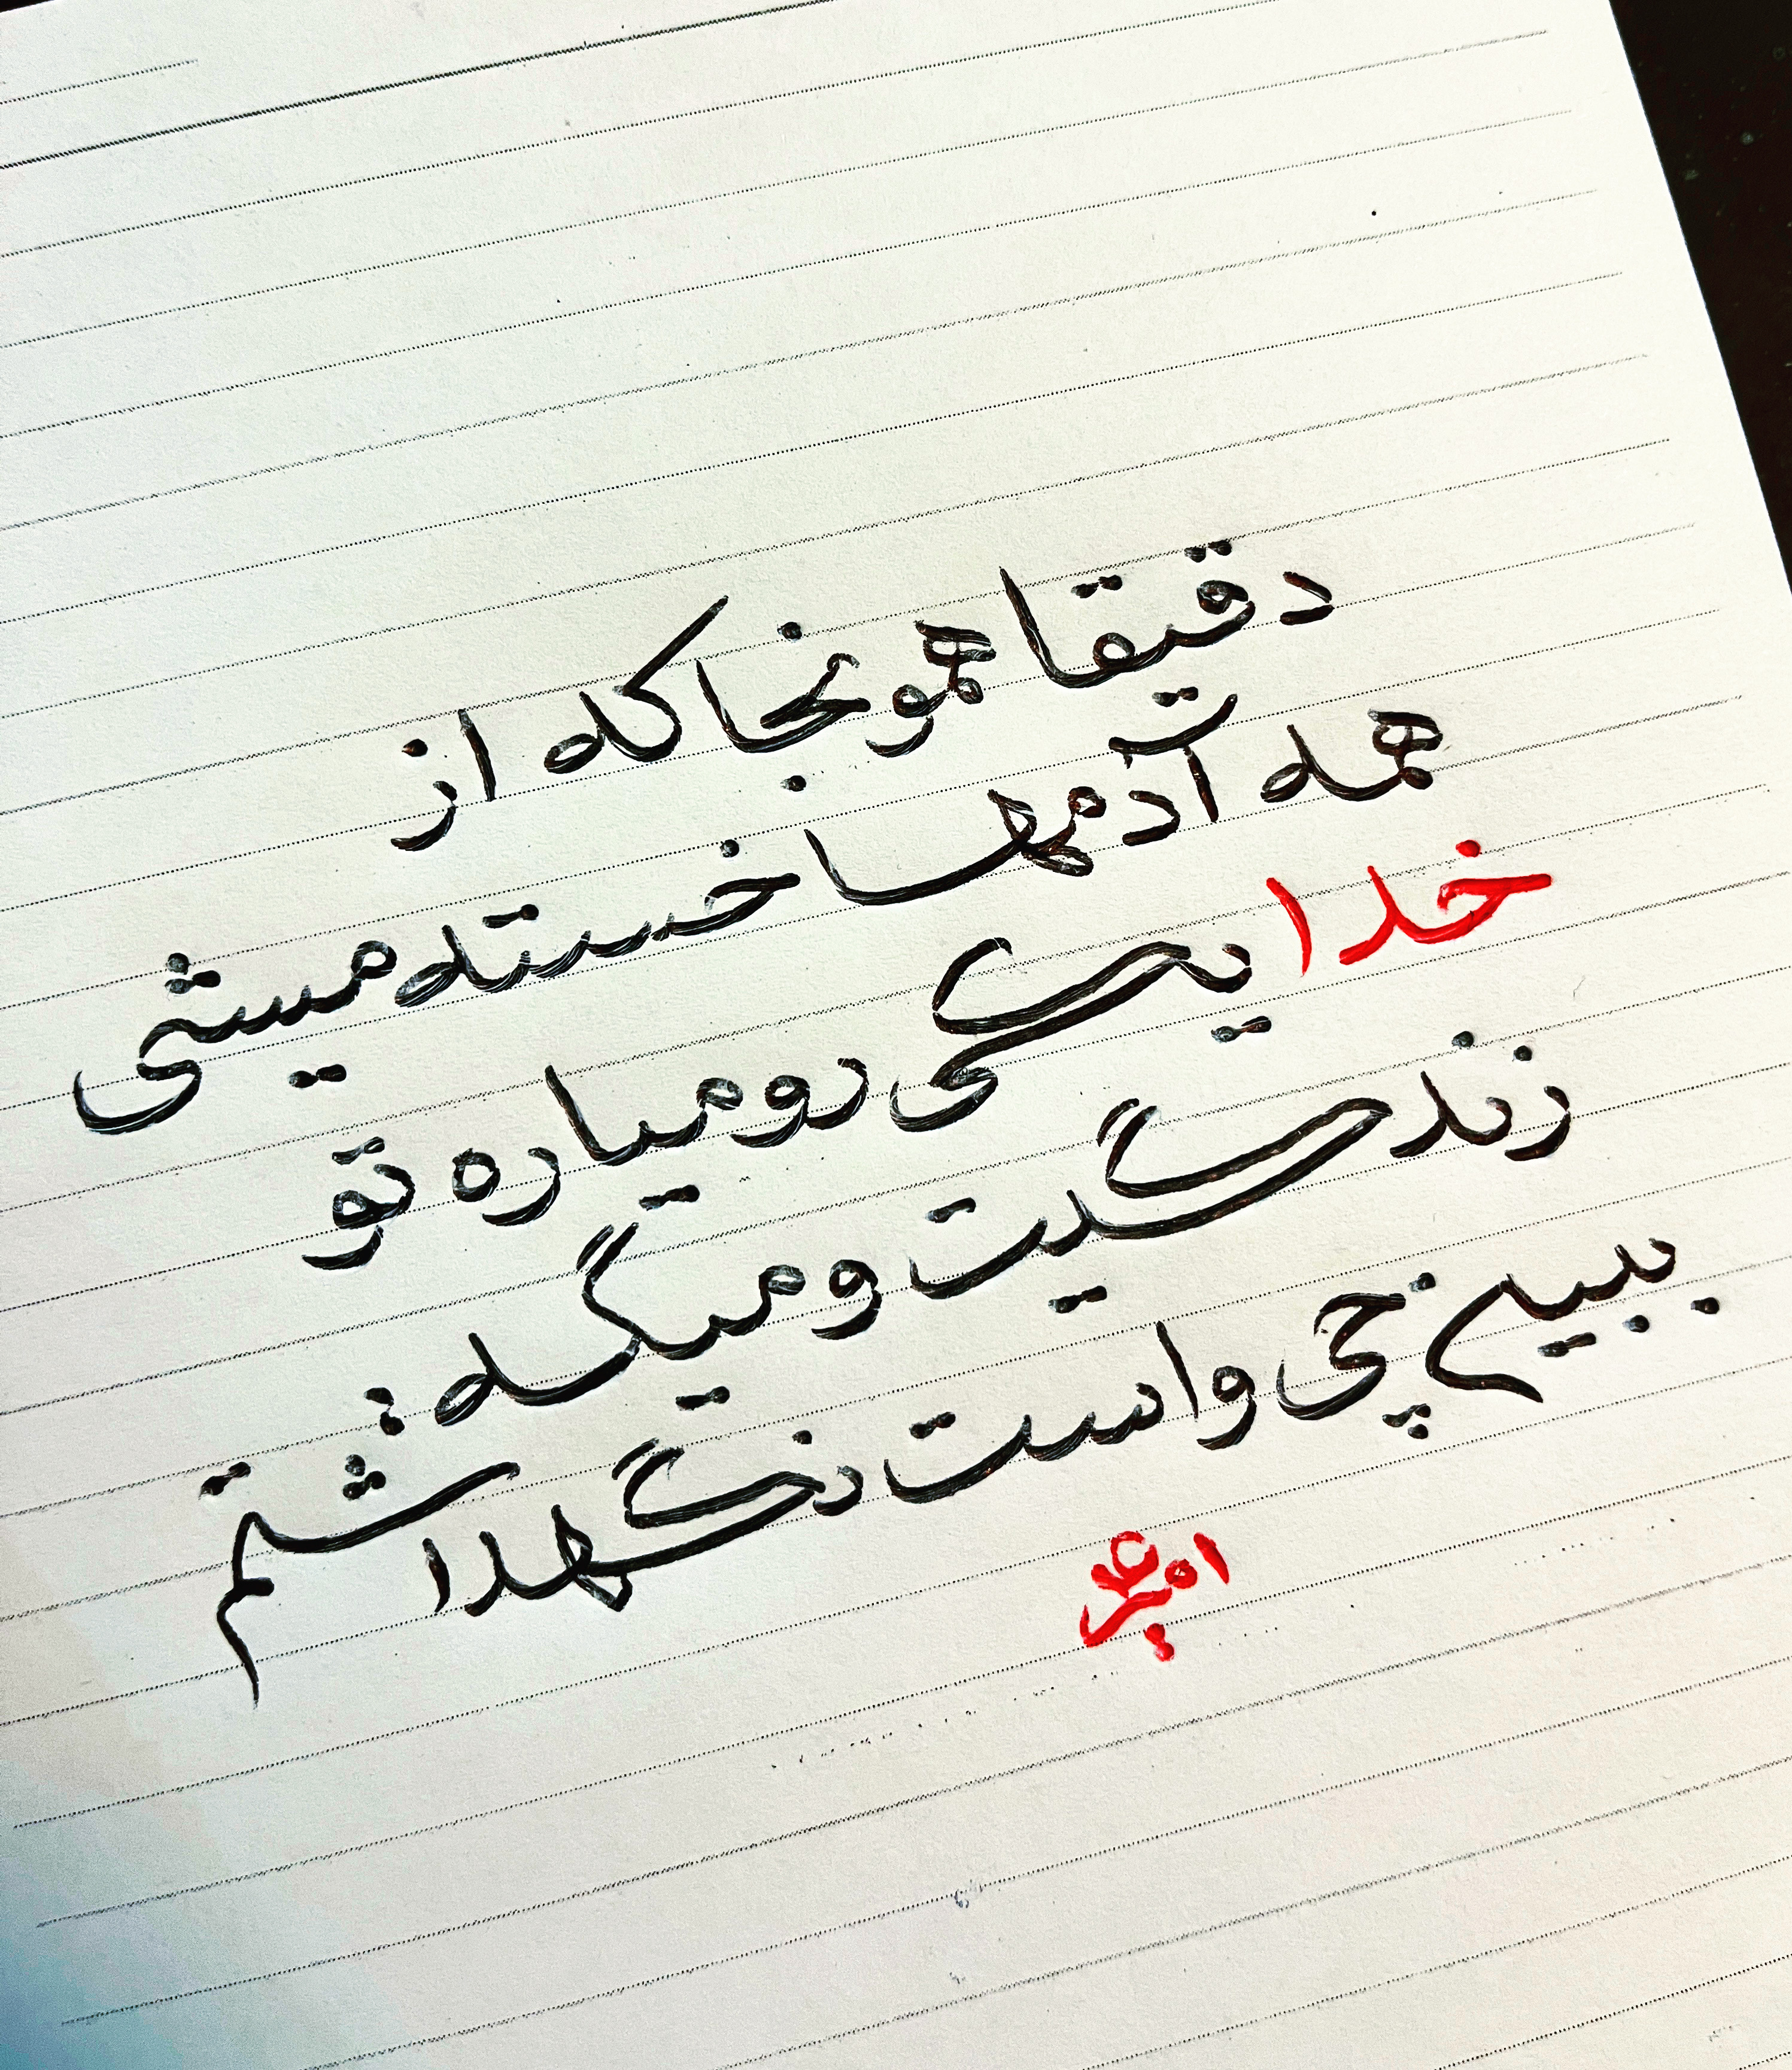 دقیقا همونجا که از
همه آدمها خسته میشی
خدا یکی رو میاره تو
زندگیت و میگه:
ببین چی واست نگهداشتم